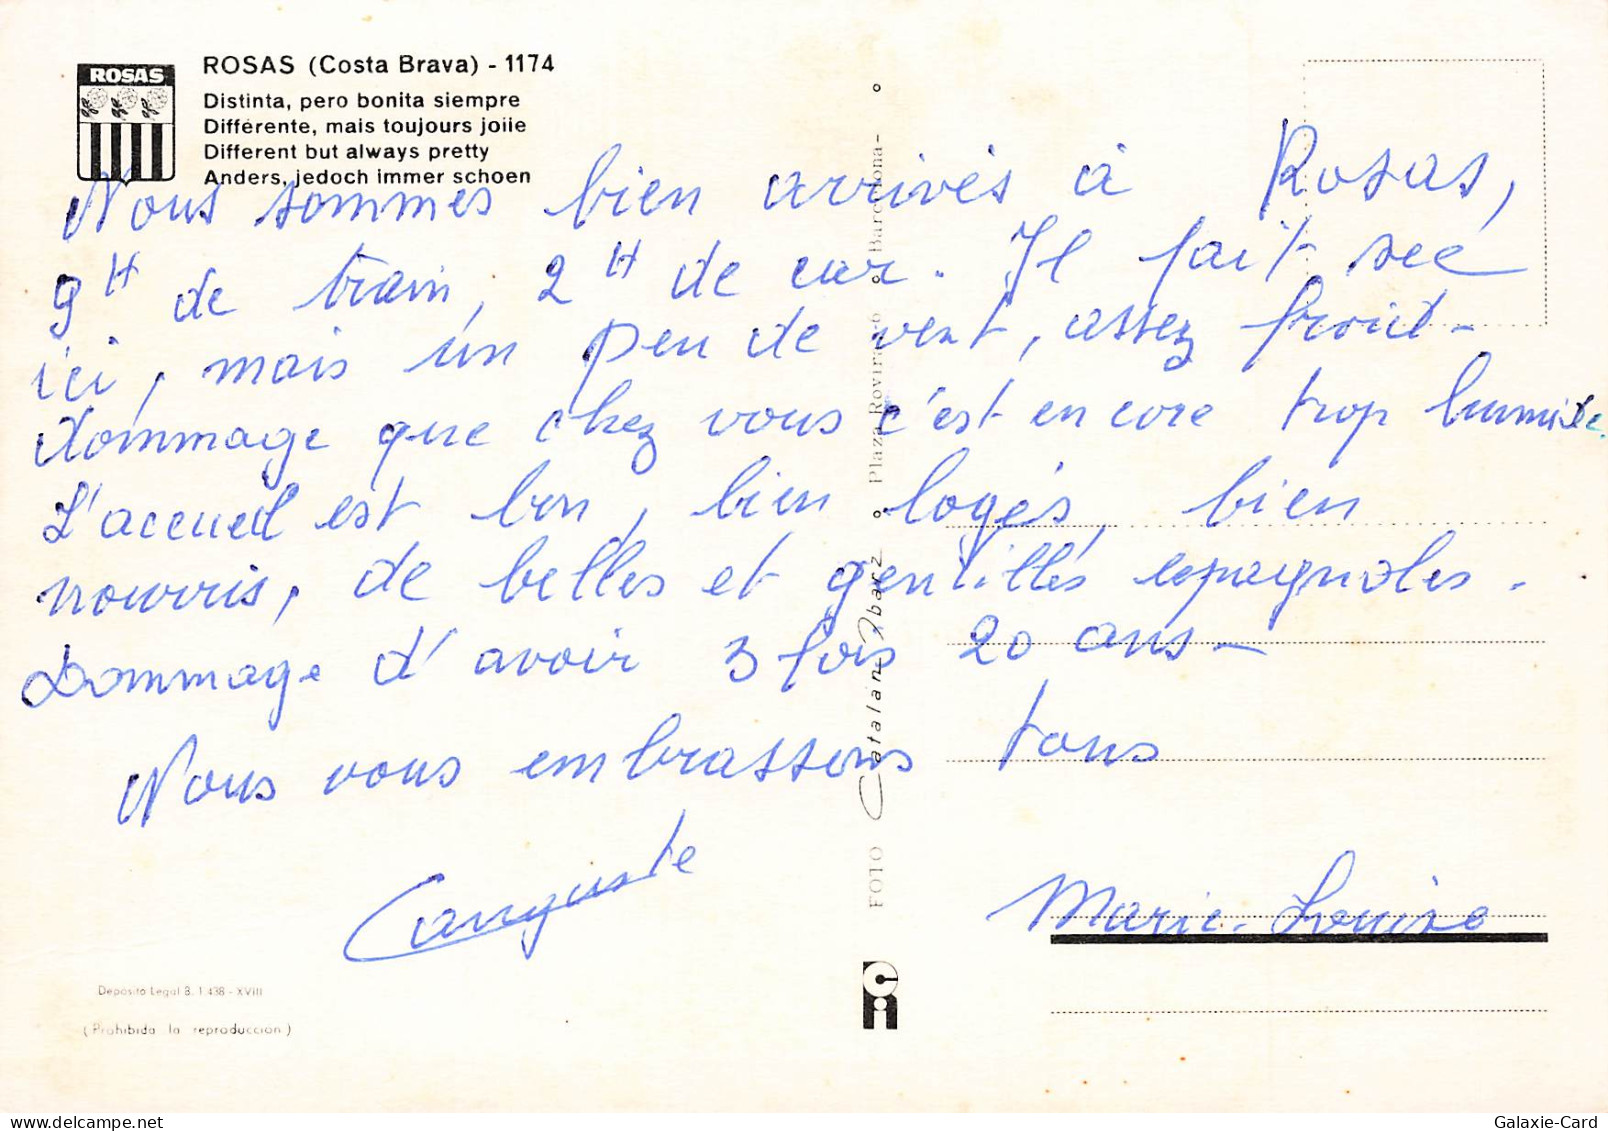 ROSAS
ROSAS (Costa Brava) - 1174
Distinta, pero bonita siempre
Différente, mais toujours jolie
Different but always pretty
Anders, jedoch immer schoen
Nous sommes bien arrivés à Rosas,
9H de train, 2H de car. Il fait sec
ici, mais un peu de vent, assez froid-
dommage que chez vous c'est encore trop humide.
L'accueil est bon, bien logés, bien
nourris, de belles et gentilles espagnoles.
Dommage d'avoir 3 fois 20 ans-
Nous vous embrassons tous
auguste
Marie-Louise
FOTO Catalan Ibarz Plaza Rovira, 6 Barcelona-
Deposito Legal B. 1.438 - XVIII
(Prohibida la reproduccion)
Galaxie-Card